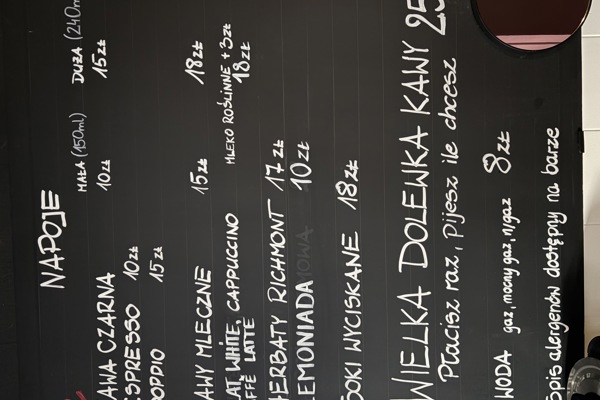 NAPOJE
MAŁA (150ml) DUŻA (240m
AWA CZARNA 10zł 15zł
SPRESSO 10zł
OPPIO 15zł
AWY MLECZNE 15zł 18zł
LAT WHITE, CAPPUCCINO MLEKO ROŚLINNE + 3zł
FFÈ LATTE 18zł
HERBATY RICHMONT 17zł
LEMONIADA 10zł
SOKI WYCISKANE 18zł
WIELKA DOLEWKA KAWY 25
Płacisz raz, pijesz ile chcesz
WODA gaz, mocny gaz, n/gaz 8zł
Spis alergenów dostępny na barze